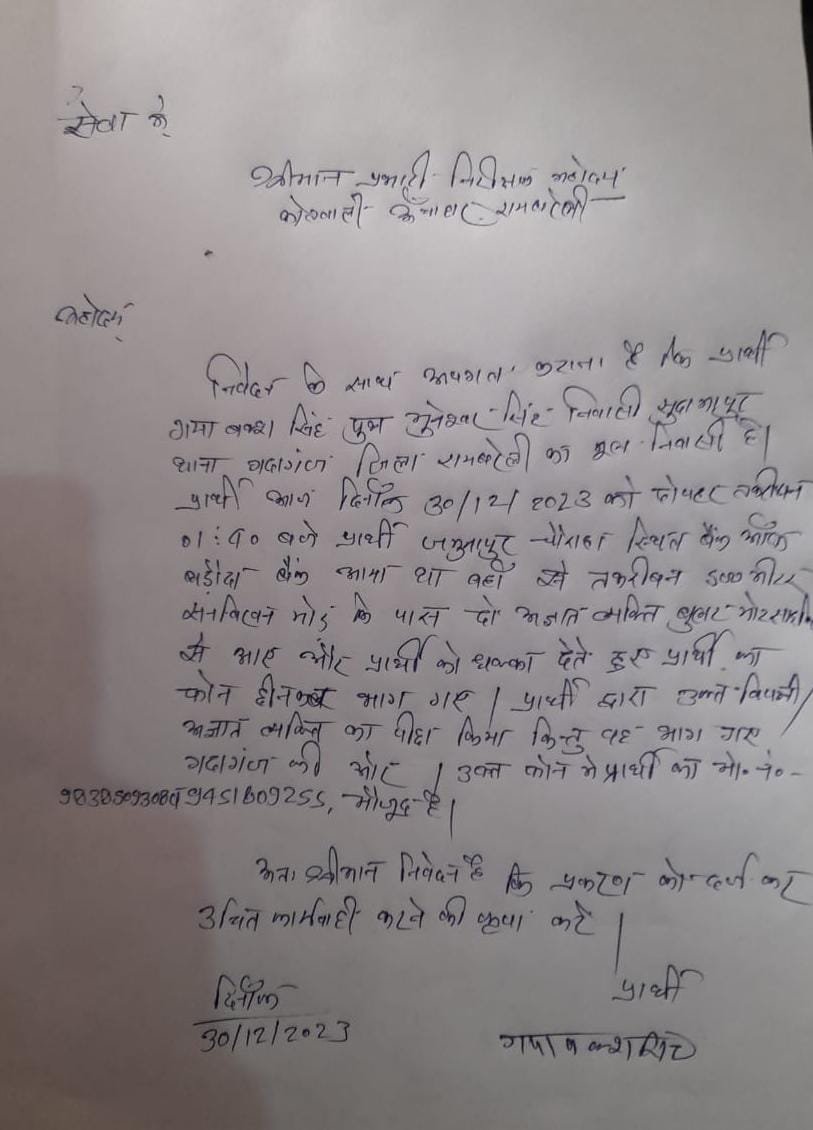 सेवा में
श्रीमान प्रभारी निरीक्षक महोदय
कोतवाली ऊँचाहार रायबरेली
महोदय
निवेदन के साथ अवगत कराना है कि प्रार्थी
गया बक्श सिंह पुत्र मुनेश्वर सिंह निवासी सुदामापुर
थाना गदागंज जिला रायबरेली का मूल निवासी है।
प्रार्थी आज दिनाँक 30/12/2023 को दोपहर तकरीबन
01:40 बजे प्रार्थी जमुनापुर चौराहा स्थित बैंक ऑफ
बड़ौदा बैंक आया था वहाँ से तकरीबन 500 मीटर
मोड़ के पास दो अज्ञात व्यक्ति बुलट मोटरसाइकिल
से आए और प्रार्थी को धक्का देते हुए प्रार्थी का
फोन छीनकर भाग गए। प्रार्थी द्वारा उक्त विपक्षी/
अज्ञात व्यक्ति का पीछा किया किन्तु वह भाग गए
गदागंज की ओर। उक्त फोन मे प्रार्थी का मो॰ नं॰-
9451609255, मौजूद है।
अतः श्रीमान निवेदन है कि प्रकरण को दर्ज कर
उचित कार्यवाही करने की कृपा करें।
दिनाँक
प्रार्थी
30/12/2023
गया बक्श सिंह